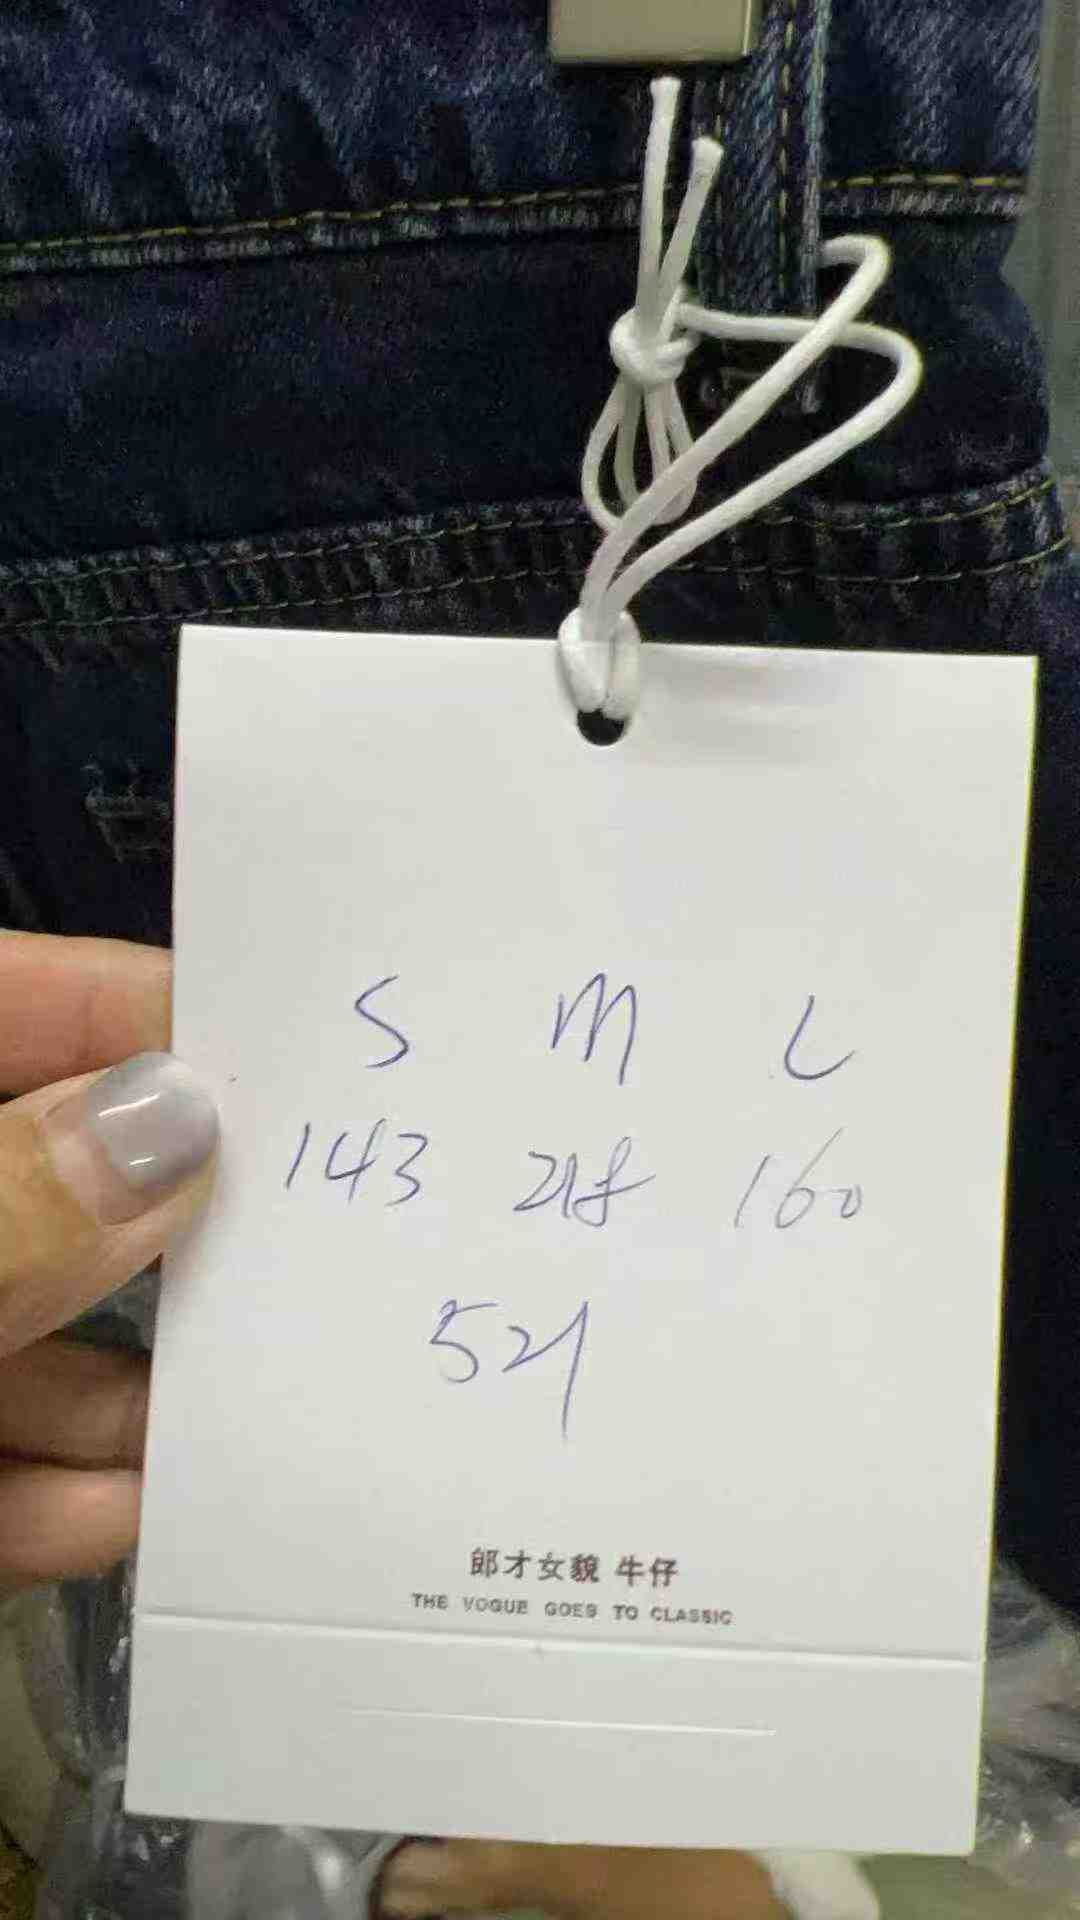 S M L
143 218 160
521
郎才女貌 牛仔
THE VOGUE GOES TO CLASSIC